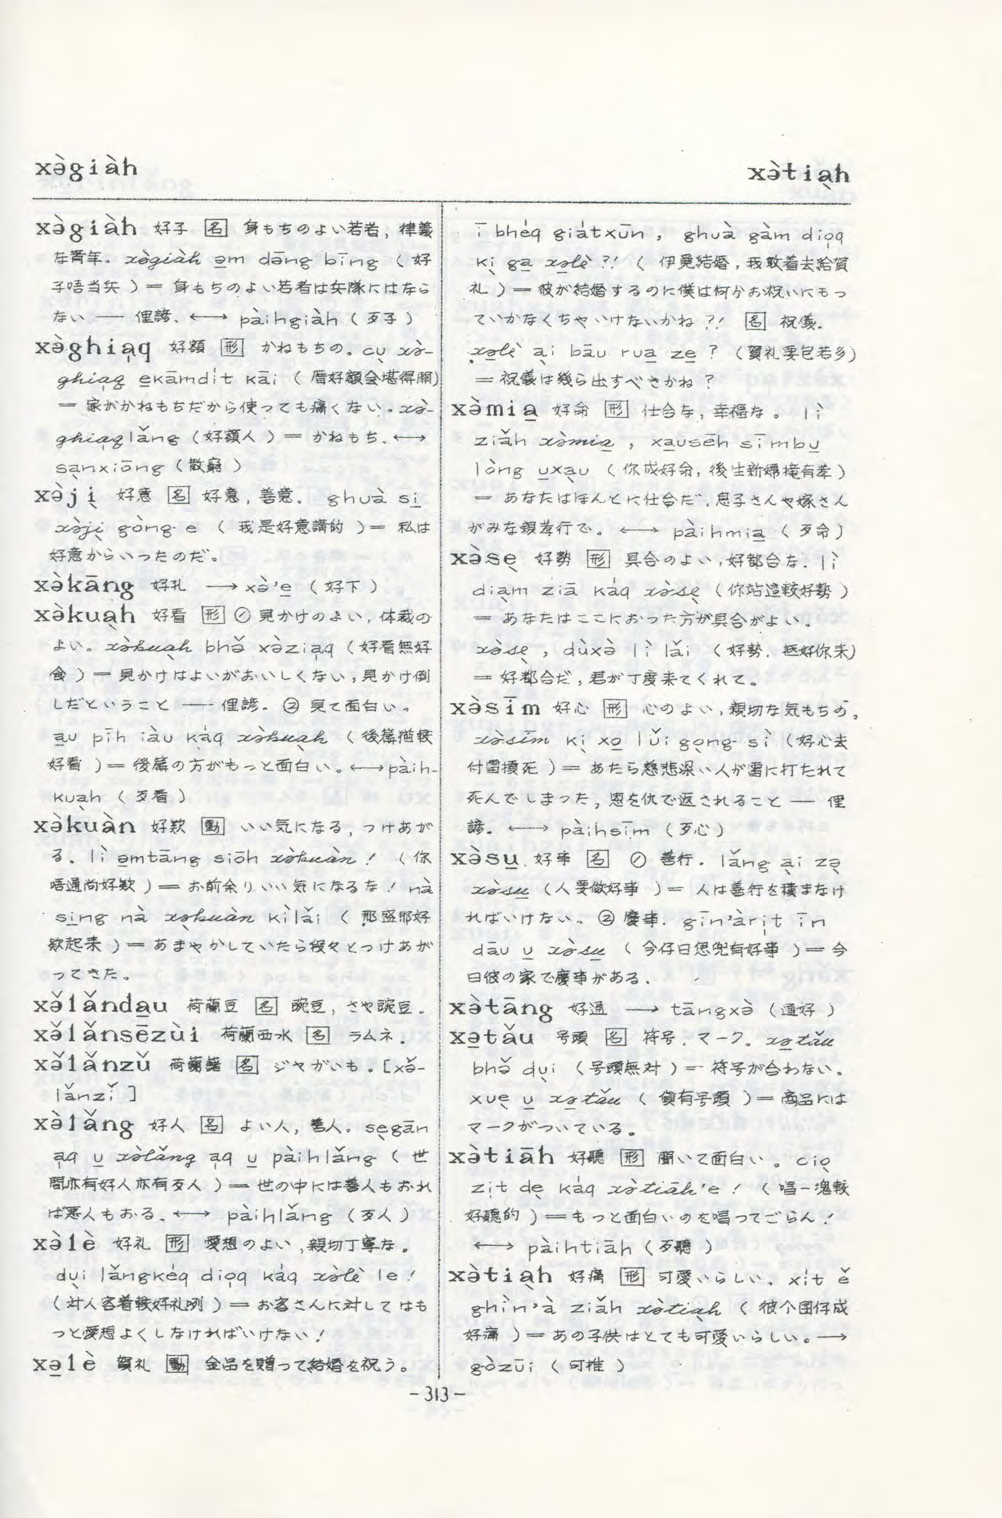 xə̀giàh
xə̀tia̱h
xə̀giàh 好子 名 身もちのよい若者, 律義
な青年. xə̀giàh ə̱m dāng bīng ( 好
子唔当兵 ) = 身もちのよい若者は兵隊にはなら
ない —— 俚諺. ←→ pàihgiàh ( 歹子 )
xə̀ghia̱q 好額 形 かねもちの. cu̱ xə̀-
ghia̱q e̱kāmdit kāi ( 厝好額会堪得開)
= 家がかねもちだから使っても痛くない. xə̀-
ghia̱q lǎng ( 好額人 ) = かねもち. ←→
sa̱nxiōng ( 散窮 )
xə̀ji̱ 好意 名 好意, 善意. ghuà si̱
xə̀ji̱ gòng·e ( 我是好意講的 ) = 私は
好意からいったのだ.
xə̀kāng 好孔 → xə̀'e̱ ( 好下 )
xə̀kua̱h 好看 形 ① 見かけのよい, 体裁の
よい. xə̀kua̱h bhə̌ xə̀zia̱q ( 好看無好
食 ) = 見かけはよいがおいしくない, 見かけ倒
しだということ —— 俚諺. ② 見て面白い.
a̱u pīh iàu kàq xə̀kua̱h ( 後篇猶較
好看 ) = 後篇の方がもっと面白い. ←→ pàih-
kua̱h ( 歹看 )
xə̀kuàn 好款 動 いい気になる, つけあが
る. lì ə̱mtāng siōh xə̀kuàn ! ( 你
唔通尚好款 ) = お前余りいい気になるな ! nà
si̱ng nà xə̀kuàn kìlǎi ( 那盛那好
款起来 ) = あまやかしていたら段々とつけあが
ってきた.
xə̌lǎnda̱u 荷蘭豆 名 豌豆, さや豌豆.
xə̌lǎnsēzùi 荷蘭西水 名 ラムネ.
xə̌lǎnzǔ 荷蘭薯 名 ジャがいも. [xə̌-
lǎnzǐ ]
xə̀lǎng 好人 名 よい人, 善人. se̱gān
a̱q u̱ xə̀lǎng a̱q u̱ pàihlǎng ( 世
間亦有好人亦有歹人 ) = 世の中には善人もおれ
ば悪人もおる. ←→ pàihlǎng ( 歹人 )
xə̀lè 好礼 形 愛想のよい, 親切丁寧な.
du̱i lǎngkéq dio̱q káq xə̀lè le !
( 対人客着較好礼咧 ) = お客さんに対してはも
っと愛想よくしなければいけない !
xə̱lè 賀礼 動 金品を贈って結婚を祝う.
ī bhéq giátxūn , ghuà gàm dio̱q
ki̱ ga̱ xə̱lè ?! ( 伊覓結婚, 我敢着去給賀
礼 ) = 彼が結婚するのに僕は何かお祝いにもっ
ていかなくちゃいけないかね ?! 名 祝儀.
xə̱lè a̱i bāu rua̱ ze̱ ? (賀礼要包若多)
= 祝儀は幾ら出すべきかね ?
xə̀mia̱ 好命 形 仕合な, 幸福な. lì
ziǎh xə̀mia̱ , xa̱usēh sīmbu̱
lòng u̱xa̱u ( 你成好命, 後生新婦攏有孝 )
= あなたはほんとに仕合だ, 息子さんや嫁さん
がみな親孝行で. ←→ pàihmia̱ ( 歹命 )
xə̀se̱ 好勢 形 具合のよい, 好都合な. lì
dia̱m ziā káq xə̀se̱ ( 你站這較好勢 )
= あなたはここにおった方が具合がよい.
xə̀se̱ , dùxə̀ lì lǎi ( 好勢. 抵好你来)
= 好都合だ, 君が丁度来てくれて.
xə̀sīm 好心 形 心のよい, 親切な気もちの.
xə̀sīm ki̱ xo̱ lǔi go̱ng sì (好心去
付雷摃死 ) = あたら慈悲深い人が雷に打たれて
死んでしまった, 恩を仇で返されること —— 俚
諺. ←→ pàihsīm ( 歹心 )
xə̀su̱ 好事 名 ① 善行. lǎng a̱i zə̱
xə̀su̱ (人要做好事 ) = 人は善行を積まなけ
ればいけない. ② 慶事. gīn'àrịt īn
dāu u̱ xə̀su̱ ( 今仔日怹兜有好事 ) = 今
日彼の家で慶事がある.
xə̀tāng 好通 → tāngxə̀ ( 通好 )
xə̱tǎu 号頭 名 符号. マーク. xə̱tǎu
bhə̌ du̱i ( 号頭無対 ) = 符号が合わない.
xue̱ u̱ xə̱tǎu ( 貨有号頭 ) = 商品には
マークがついている.
xə̀tiāh 好聴 形 聞いて面白い. cio̱
zịt de̱ káq xə̀tiāh'e ! ( 唱一塊較
好聴的 ) = もっと面白いのを唱ってごらん !
←→ pàihtiāh ( 歹聴 )
xə̀tia̱h 好痛 形 可愛いらしい. xít ě
ghìn'à ziǎh xə̀tia̱h ( 彼个囝仔成
好痛 ) = あの子供はとても可愛いらしい. →
gòzūi ( 可推 )
- 313 -